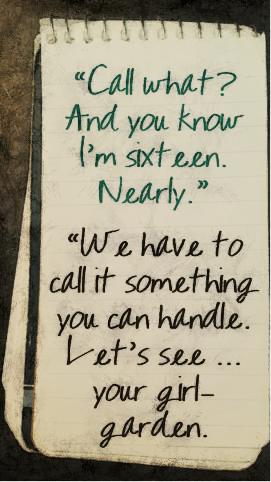 “Call what?
And you know
I'm sixteen.
Nearly.”
“We have to
call it something
you can handle.
Let's see ...
your girl-
garden.